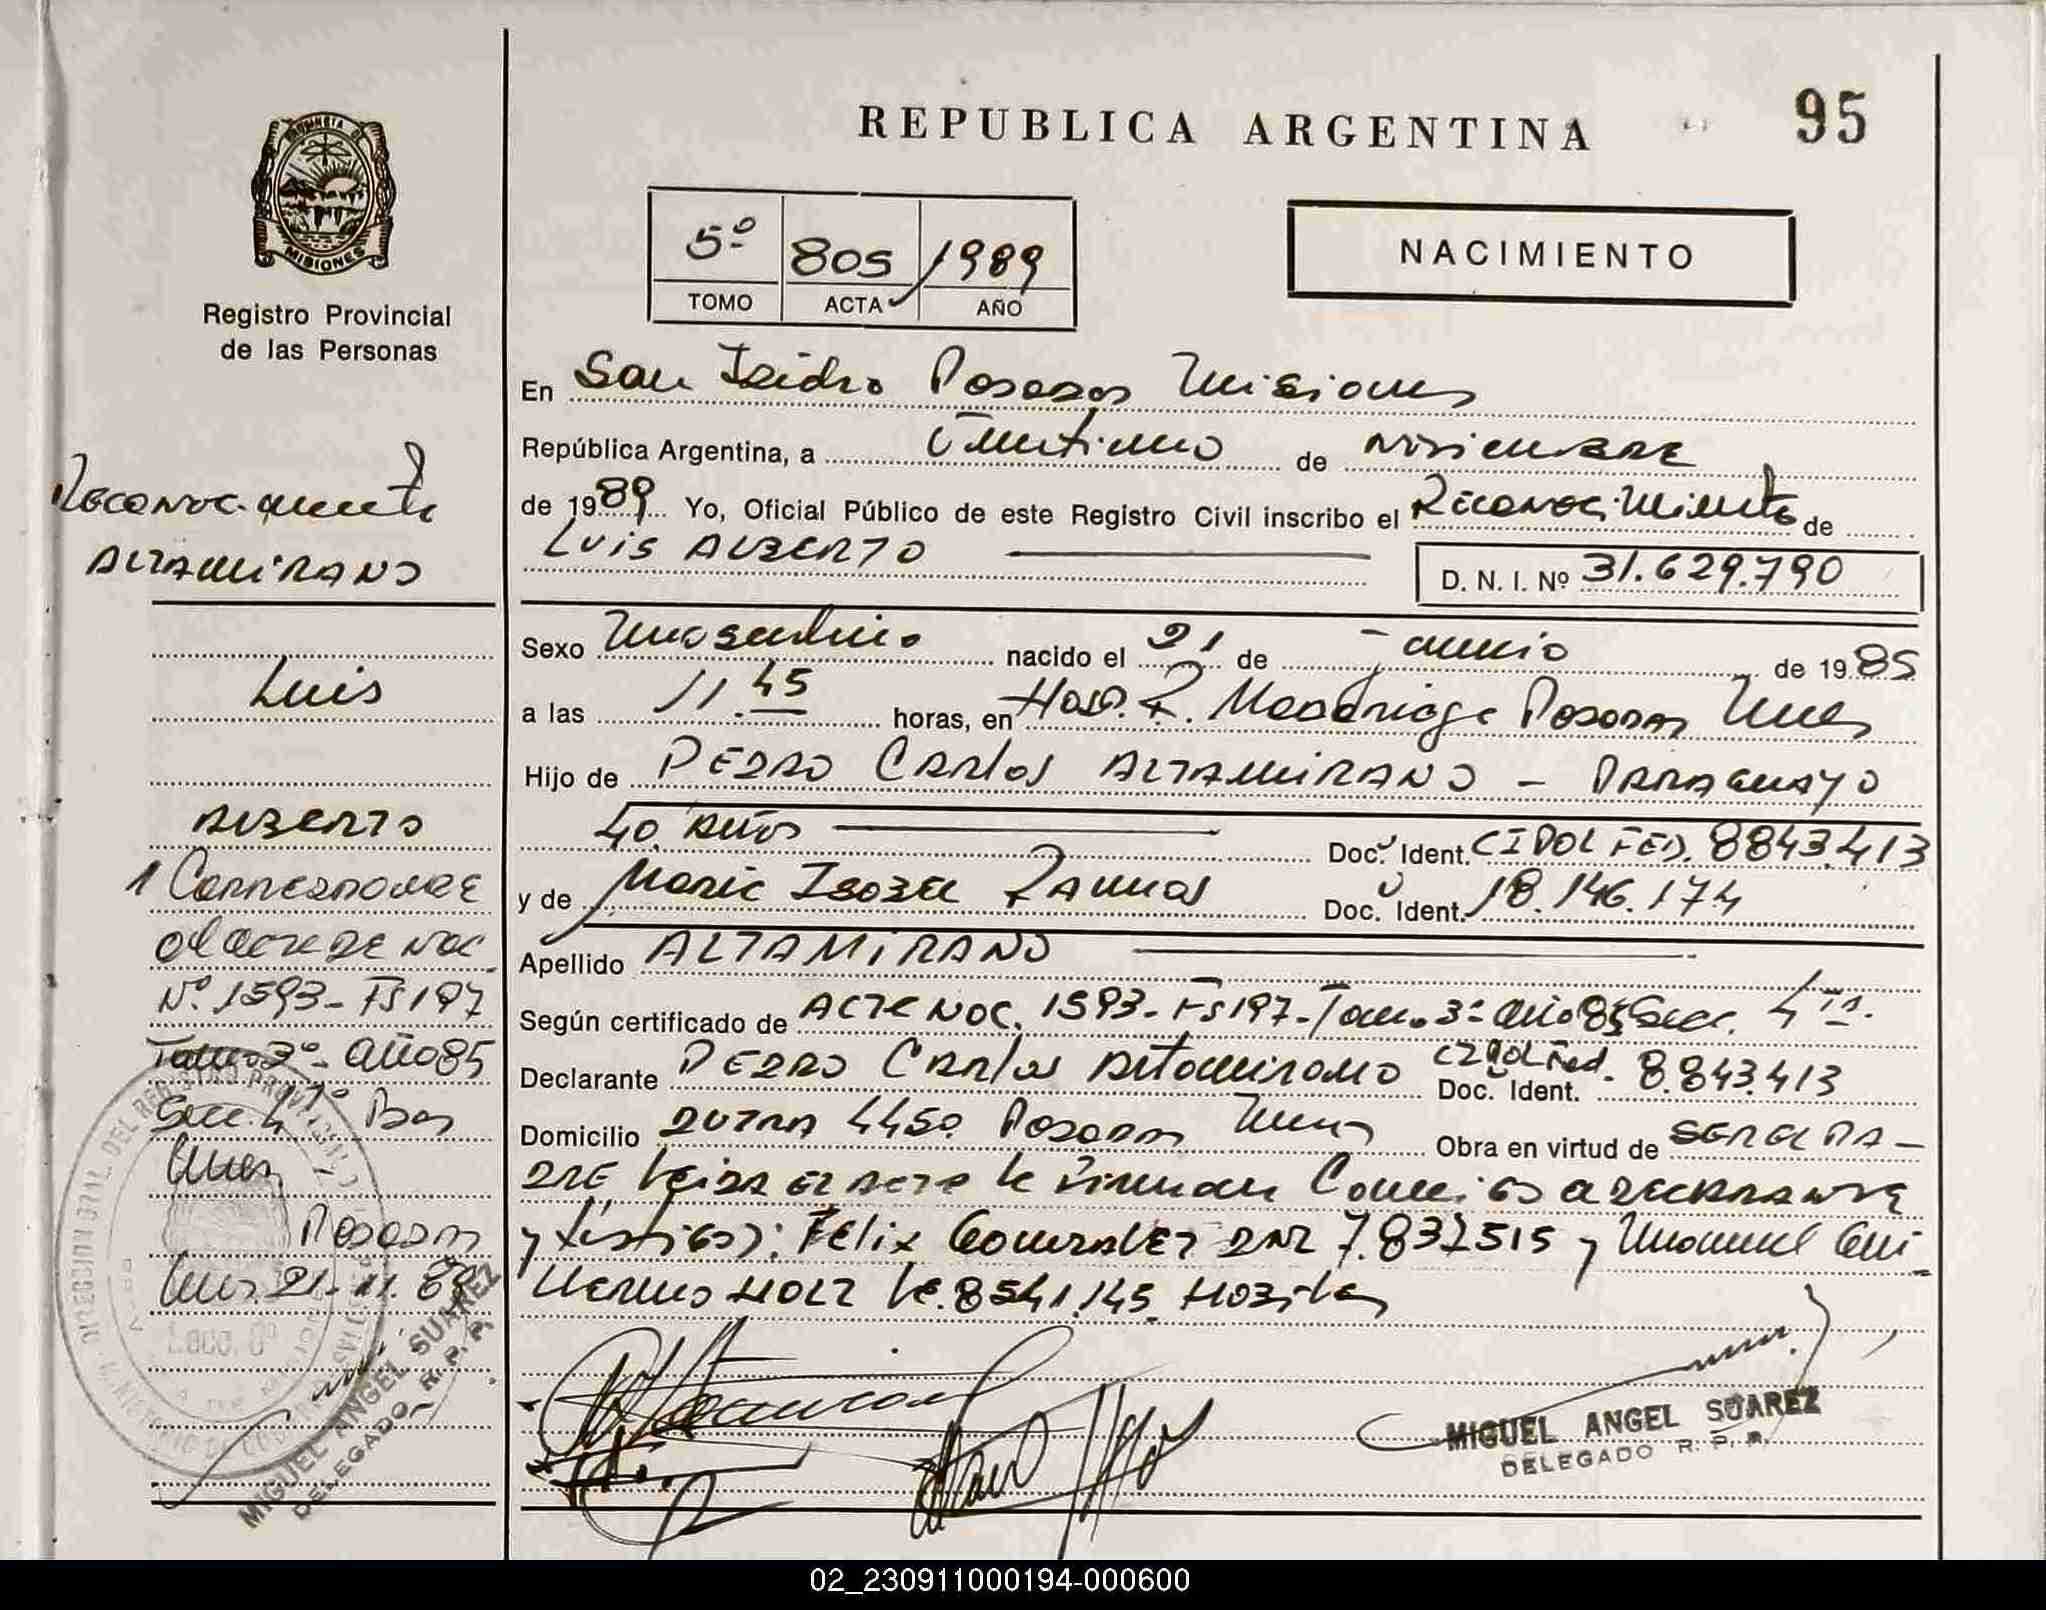 REPUBLICA ARGENTINA
95
PROVINCIA DE
MISIONES
Registro Provincial
de las Personas
5º 805 1989
TOMO ACTA AÑO
NACIMIENTO
En San Isidro Posadas Misiones
República Argentina, a veintiuno de noviembre
de 1989 Yo, Oficial Público de este Registro Civil inscribo el Reconocimiento de
Luis Alberto D. N. I. Nº 31.629.790
Sexo Masculino nacido el 21 de junio de 1985
a las 11.45 horas, en Hosp. R. Madariaga Posadas Mnes
Hijo de Pedro Carlos Altamirano - Paraguayo
40 años Doc. Ident. CIPOL FED. 8843.413
y de Maria Isabel Ramos Doc. Ident. 18.146.174
Apellido ALTAMIRANO
Según certificado de Acta Nac. 1593 - Fs 197 - Tomo 3º año 85 Secc. 4ta.
Declarante Pedro Carlos Altamirano CIPol Fed. Doc. Ident. 8.843.413
Domicilio 4450 Posadas Mnes Obra en virtud de ser el pa-
dre leida el acta la firman conmigo el declarante
y testigos: Felix Gonzalez DNI 7.837515 y Manuel Gui
llermo Holz le. 8541.145.
MIGUEL ANGEL SUAREZ
DELEGADO R. P. P.
Reconocimiento
ALTAMIRANO
Luis
Alberto
Corresponde
al acta de nac.
Nº. 1593 - Fs 197
Tomo 3º - año 85
Secc. 4ta Pdas
Mnes
Posadas
Mnes. 21-11-89
DIRECCION GRAL. DEL REGISTRO PROVINCIAL
MIGUEL ANGEL SUAREZ
DELEGADO R. P. P.
02_230911000194-000600